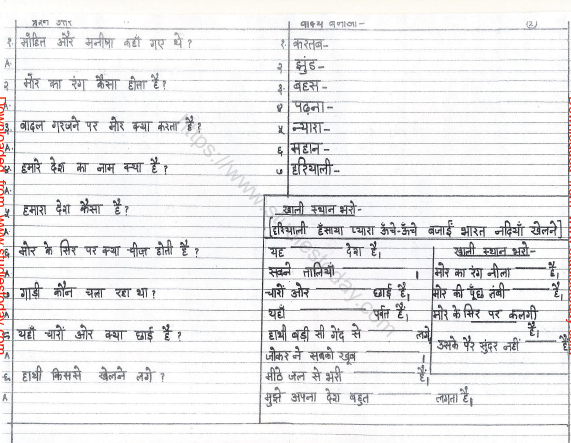 प्रश्न उत्तर
१. मोहित और मनीषा कहाँ गए थे ?
A.
२. मोर का रंग कैसा होता है ?
A.
३. बादल गरजने पर मोर क्या करता है ?
A.
४. हमारे देश का नाम क्या है ?
A.
५ हमारा देश कैसा है ?
A
६ मोर के सिर पर क्या चीज़ होती है ?
A
७ गाड़ी कौन चला रहा था ?
A
८ यहाँ चारों ओर क्या छाई है ?
A
९. हाथी किससे खेलने लगे ?
A
वाक्य बनाना- (2)
१. करतब-
२ झुंड-
३. बहस-
४ पढ़ना-
५ न्यारा-
६ महान-
७ हरियाली-
खाली स्थान भरो-
[हरियाली हँसाया प्यारा ऊँचे-ऊँचे बजाईं भारत नदियाँ खेलने]
यह ______ देश है।
सबने तालियाँ ______ ।
चारों ओर ______ छाई है।
यहाँ ______ पर्वत हैं।
हाथी बड़ी सी गेंद से ______ लगे।
जोकर ने सबको खूब ______ ।
मीठे जल से भरी ______ हैं।
मुझे अपना देश बहुत ______ लगता है।
खाली स्थान भरो-
मोर का रंग नीला ______ है।
मोर की पूँछ लंबी ______ है।
मोर के सिर पर कलगी ______ है।
उसके पैर सुंदर नहीं ______ हैं।
https://www.stuntstoday.com